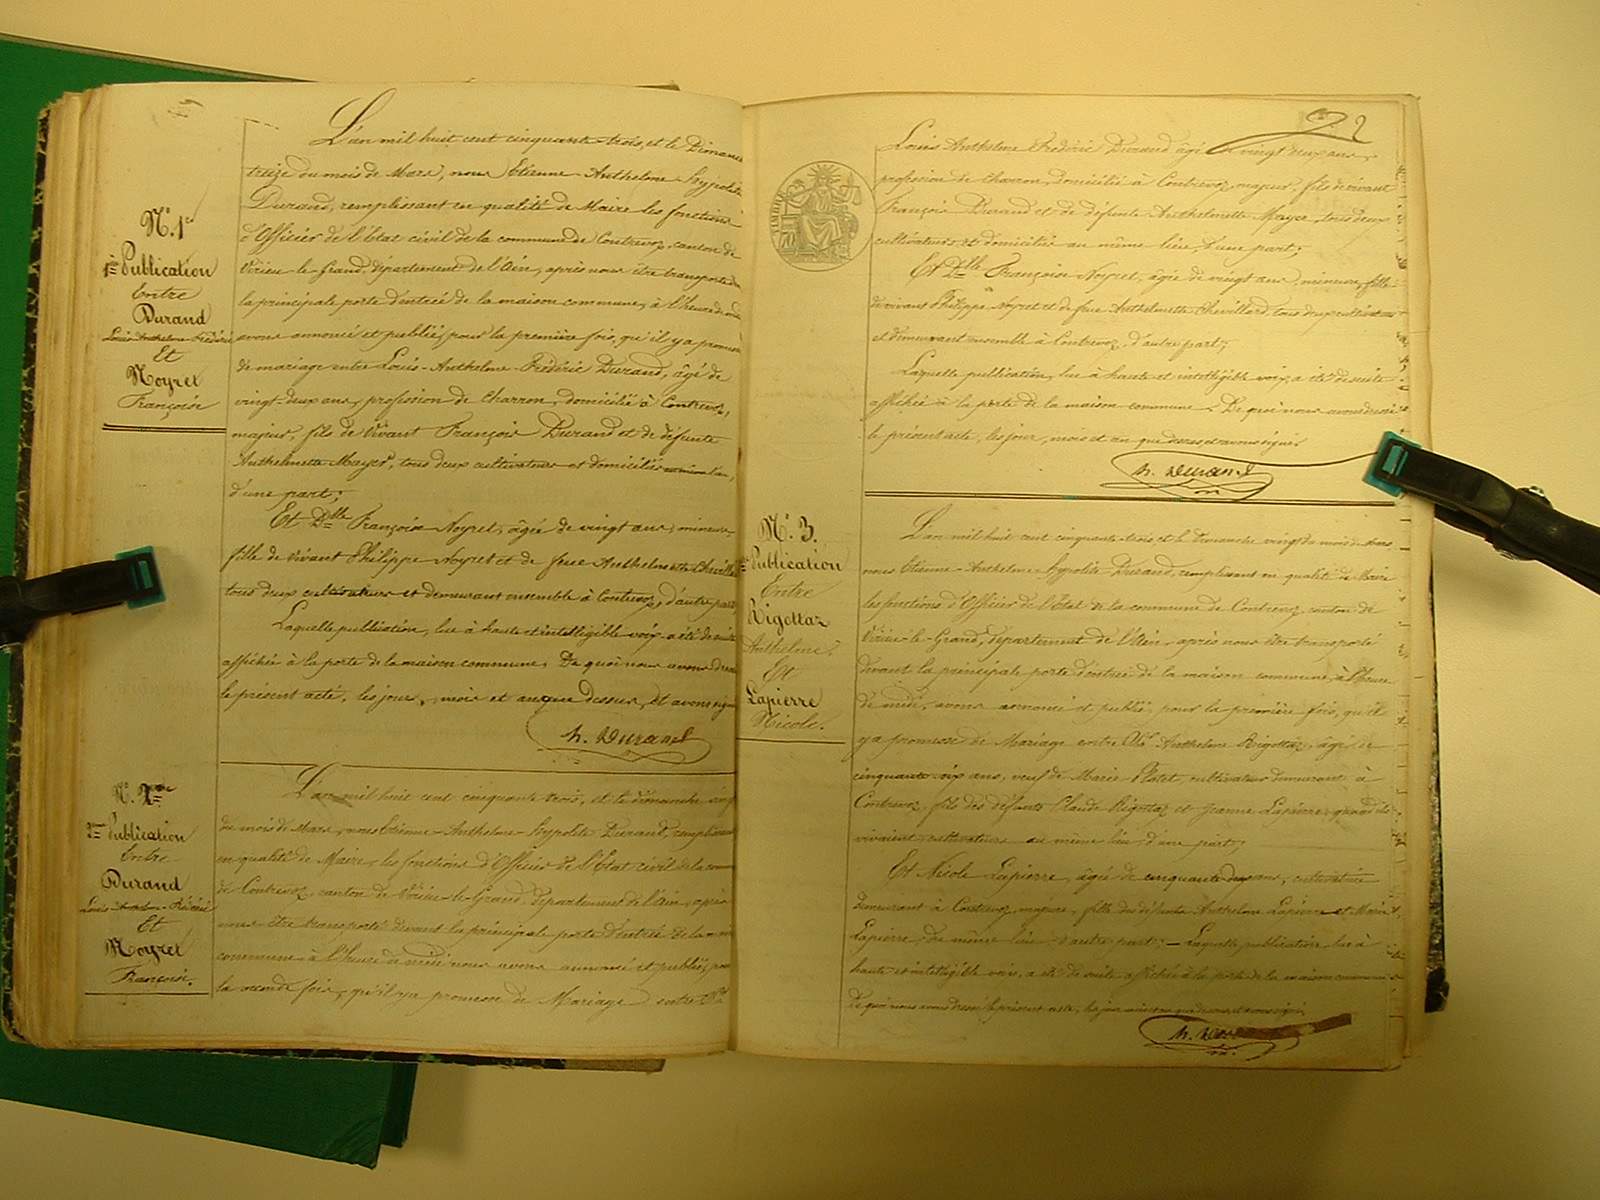 N° 1er
1ère Publication
Entre
Durand
Louis-Anthelme-Frédéric
Et
Noyret
Françoise
L'an mil huit cent cinquante-trois, et le Dimanche
treize du mois de Mars, nous Etienne-Anthelme-Hyppolite
Durand, remplissant en qualité de Maire les fonctions
d'Officier de l'Etat civil de la commune de Contrevoz, canton de
Virieu-le-Grand, département de l'Ain, après nous être transporté
la principale porte d'entrée de la maison commune, à l'heure de midi
avons annoncé et publié, pour la première fois, qu'il y a promesse
de mariage entre Louis-Anthelme-Frédéric Durand, âgé de
vingt deux ans, profession de charron, domicilié à Contrevoz,
majeur, fils de vivant François Durand et de défunte
Anthelmette Mayer, tous deux cultivateurs et domiciliés
d'une part;
Et Dlle Françoise Noyret, âgée de vingt ans, mineure,
fille de vivant Philippe Noyret et de feue Anthelmette Chevillard
tous deux cultivateurs et demeurant ensemble à Contrevoz, d'autre part
Laquelle publication, lue à haute et intelligible voix, a été de suite
affichée à la porte de la maison commune. De quoi nous avons dressé
le présent acte, les jour, mois et an que dessus, et avons signé
h. Durand
N° 2me
2me Publication
Entre
Durand
Louis-Anthelme-Frédéric
Et
Noyret
Françoise.
L'an mil huit cent cinquante trois, et le dimanche vingt
du mois de Mars, nous Etienne-Anthelme-Hyppolite Durand, remplissant
en qualité de Maire, les fonctions d'Officier de l'Etat civil de la commune
de Contrevoz, canton de Virieu-le-Grand, département de l'Ain, après
nous être transporté devant la principale porte d'entrée de la maison
commune, à l'heure de midi nous avons annoncé et publié, pour
la seconde fois, qu'il y a promesse de Mariage entre
2
TIMBRE
Louis Anthelme Frédéric Durand âgé de vingt deux ans,
profession de charron, domicilié à Contrevoz, majeur, fils de vivant
François Durand et de défunte Anthelmette Mayer, tous deux
cultivateurs, et domicilié au même lieu, d'une part;
Et Dlle Françoise Noyret, âgée de vingt ans, mineure, fille
de vivant Philippe Noyret et de feue Anthelmette Chevillard, tous deux cultivateurs
et demeurant ensemble à Contrevoz, d'autre part;
Laquelle publication, lue à haute et intelligible voix, a été de suite
affichée à la porte de la maison commune. De quoi nous avons dressé
le présent acte, les jour, mois et an que dessus, et avons signé.
h. Durand
N° 3.
Publication
Entre
Rigottaz
Anthelme.
Et
Lapierre
Nicole.
L'an mil huit cent cinquante-trois et le Dimanche vingt du mois de Mars,
nous Etienne-Anthelme-Hyppolite Durand, remplissant en qualité de Maire
les fonctions d'Officier de l'Etat de la commune de Contrevoz, canton de
Virieu-le-Grand, département de l'Ain, après nous être transporté
devant la principale porte d'entrée de la maison commune, à l'heure
de midi, avons annoncé et publié, pour la première fois, qu'il
y a promesse de Mariage entre Anthelme Rigottaz, âgé de
cinquante-six ans, veuf de Marie cultivateur demeurant à
Contrevoz, fils des défunts Claude Rigottaz et Jeanne Lapierre, quand ils
vivaient cultivateurs au même lieu, d'une part,
Et Nicole Lapierre, âgée de cinquante-deux ans, cultivatrice
demeurant à Contrevoz, majeure, fille des défunts Anthelme Lapierre et Marie
Lapierre, du même lieu, d'autre part; - Laquelle publication lue à
haute et intelligible voix, a été de suite affichée à la porte de la maison commune
De quoi nous avons dressé le présent acte, les jour, mois et an que dessus, et avons signé.
h. Durand